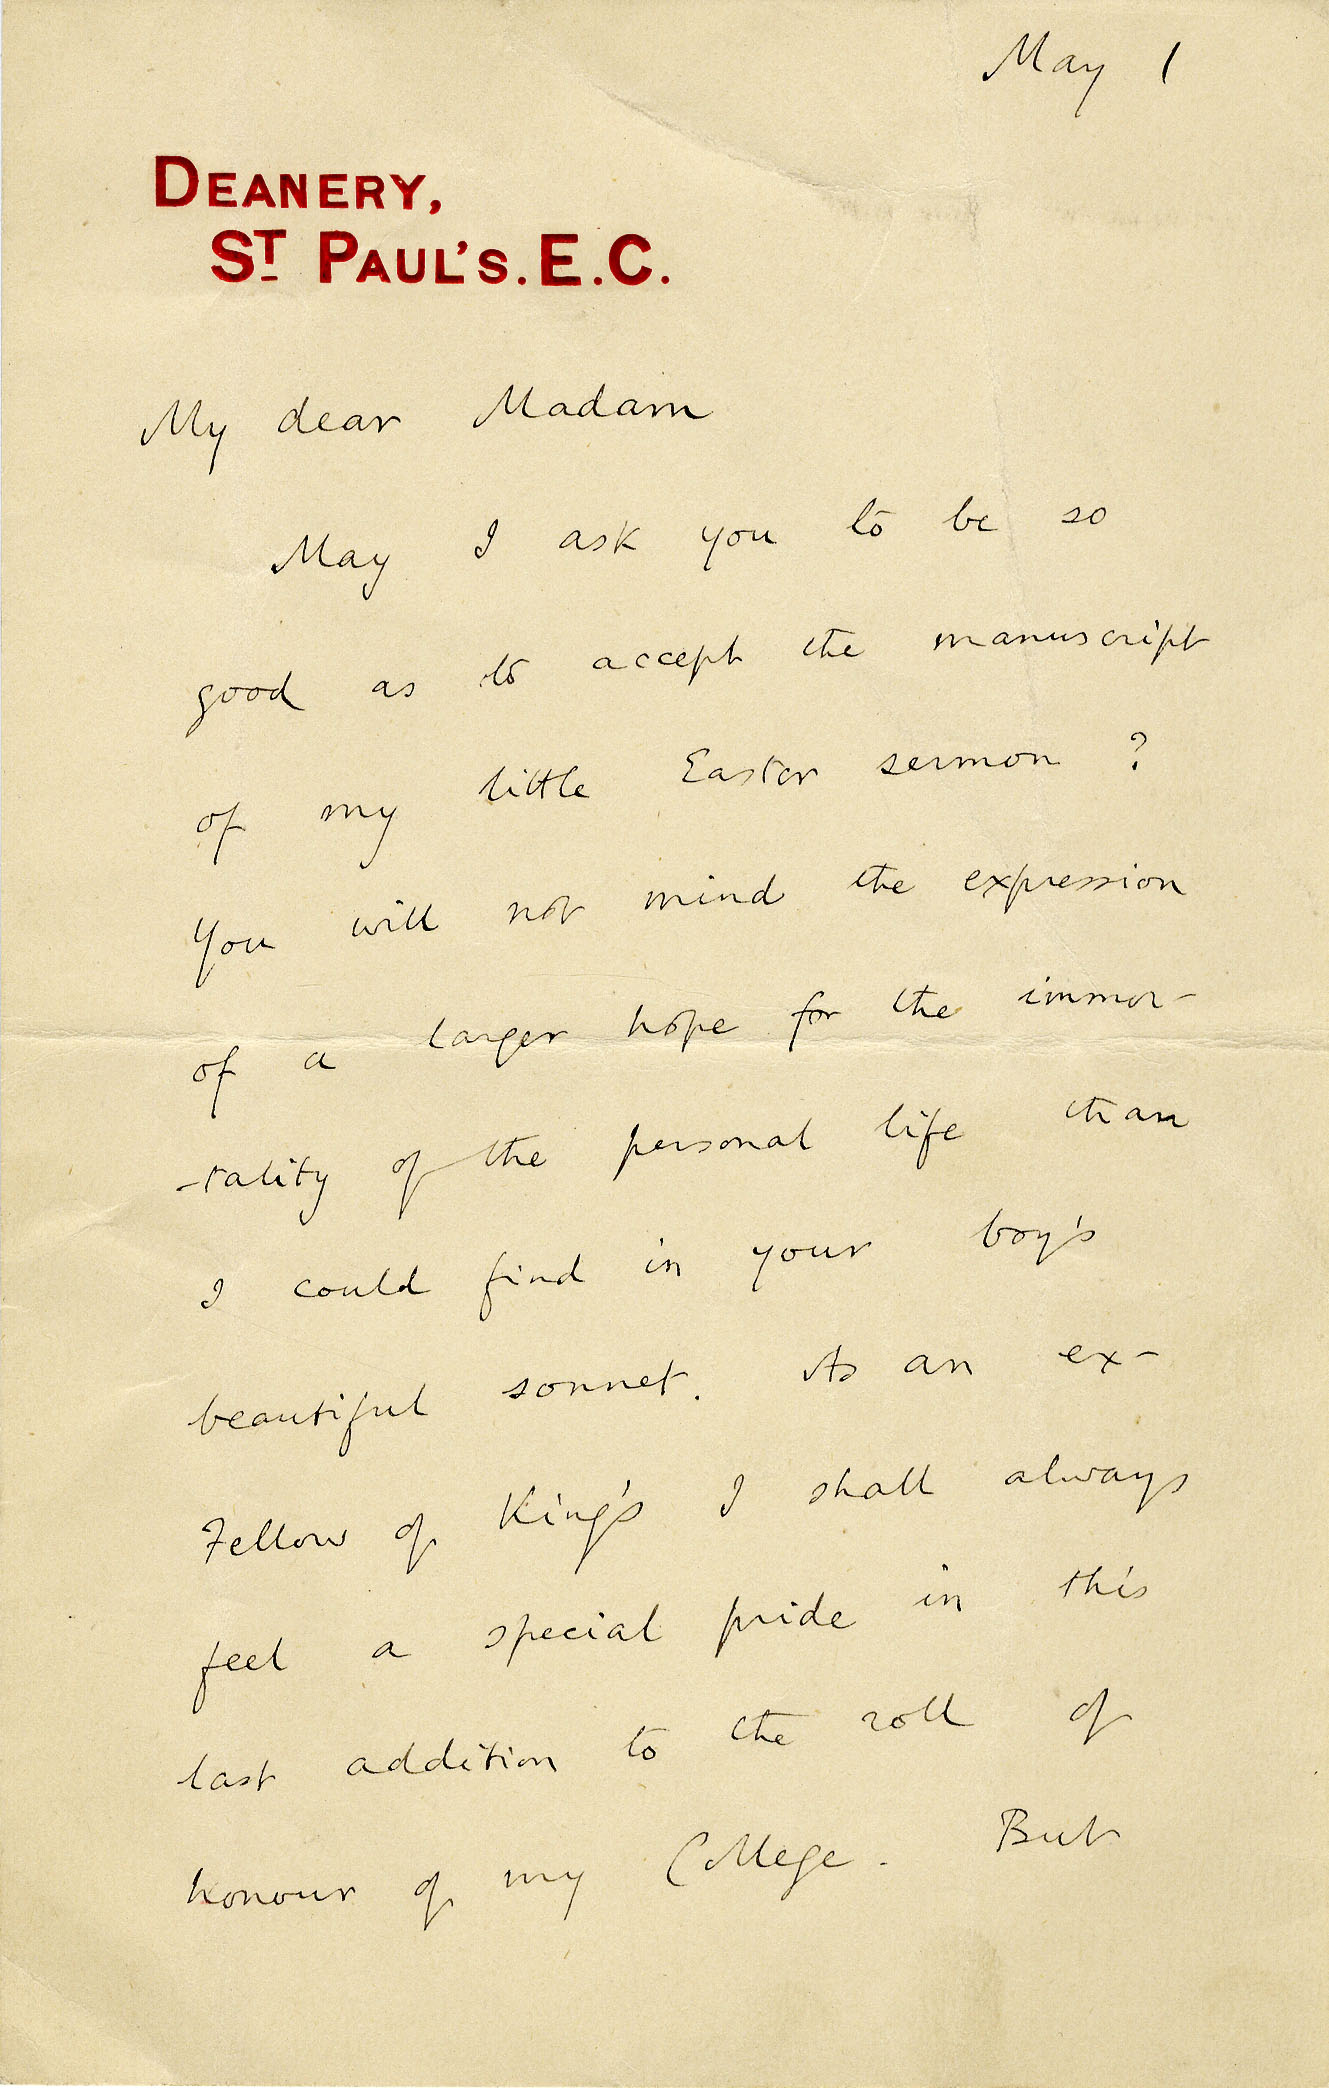 May 1
DEANERY,
ST PAUL'S. E.C.
My dear Madam
May I ask you to be so
good as to accept the manuscript
of my little Easter sermon ?
You will not mind the expression
of a larger hope for the immor-
-tality of the personal life than
I could find in your boy's
beautiful sonnet. As an ex-
Fellow of King's I shall always
feel a special pride in this
last addition to the roll of
honour of my College. But